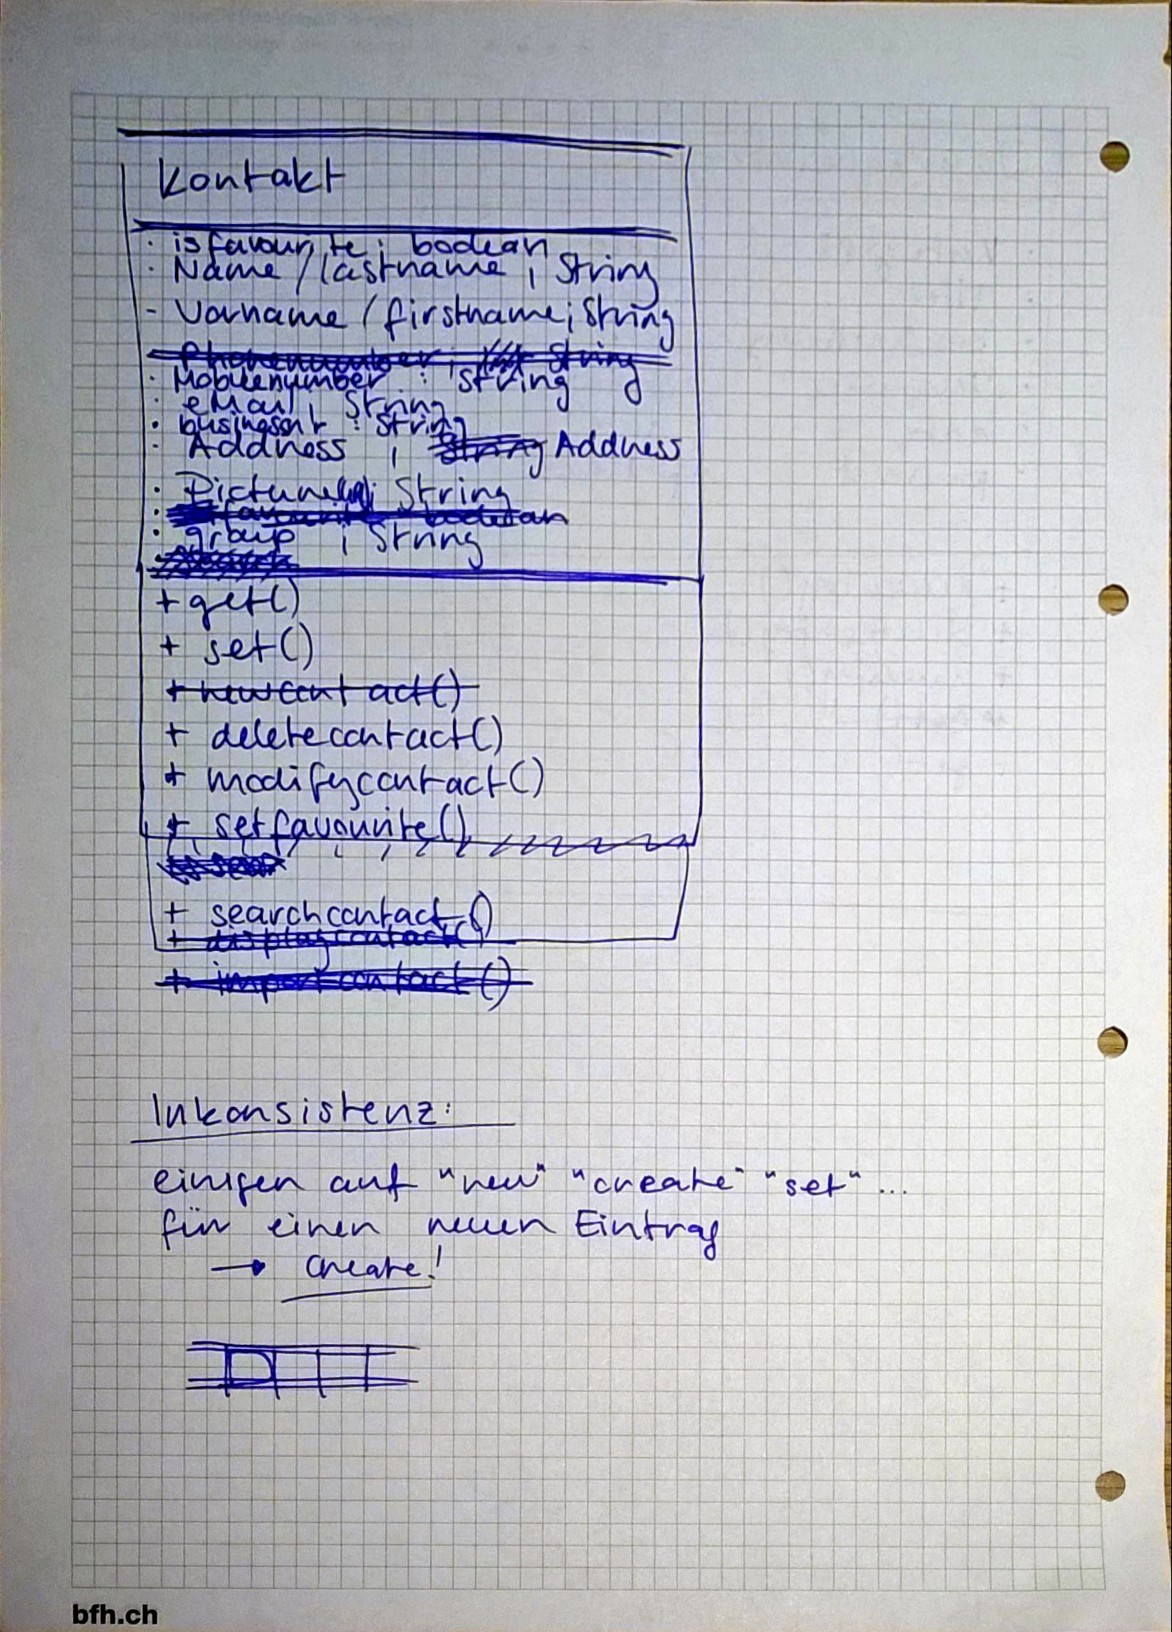 Kontakt
· isfavourite ; boolean
· Name / lastname ; String
- Vorname / firstname ; String
Phonenumber ; String
· Mobilenumber : String
· eMail ; String
· businessnr : String
· Address ; String Address
· Picture ; String
· favourite boolean
· group ; String
+ get()
+ set()
+ newcontact()
+ deletecontact()
+ modifycontact()
+ setfavourite()
+ searchcontact()
+ displaycontact()
+ importcontact()
Inkonsistenz:
einigen auf "new" "create" "set" ...
für einen neuen Eintrag
→ Create!
bfh.ch